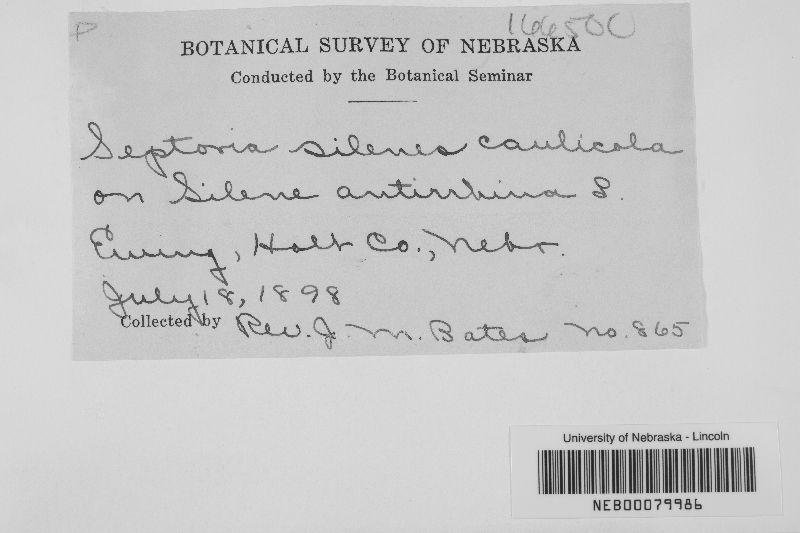 P
166500
BOTANICAL SURVEY OF NEBRASKA
Conducted by the Botanical Seminar
Septoria silenes caulicola
on Silene antirrhina L.
Ewing, Holt Co., Nebr.
July 18, 1898
Collected by Rev. J. M. Bates No. 865
University of Nebraska - Lincoln
NEB00079986